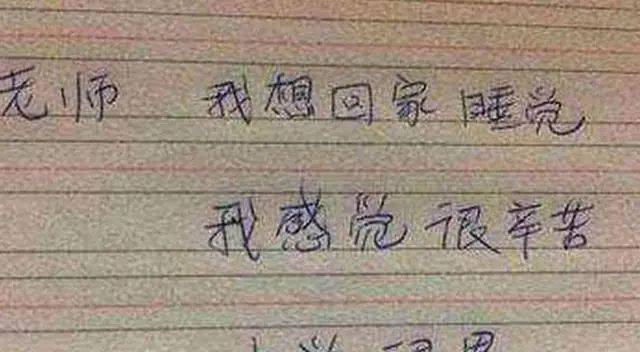 老师 我想回家睡觉
我感觉很辛苦